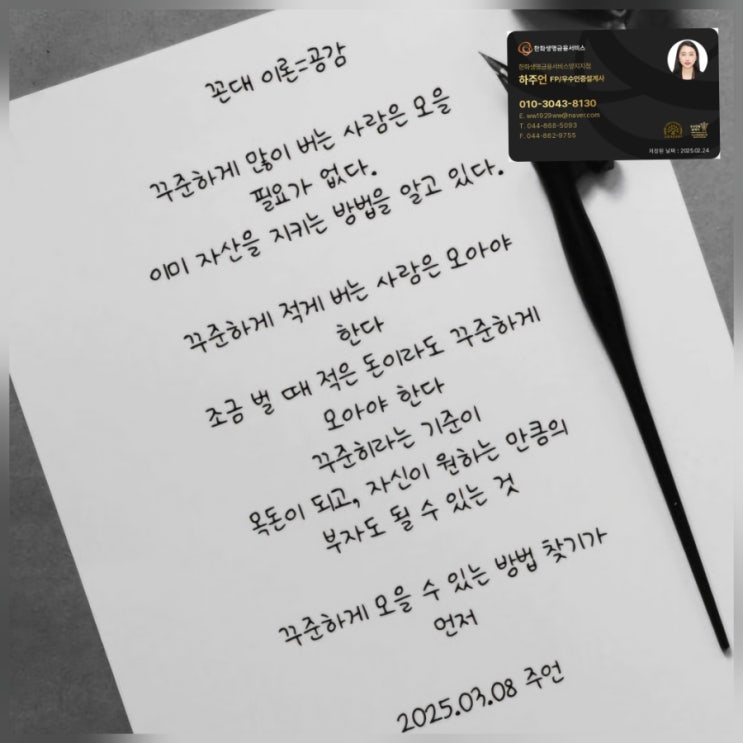 꼰대 이론=공감
꾸준하게 많이 버는 사람은 모을
필요가 없다.
이미 자산을 지키는 방법을 알고 있다.
꾸준하게 적게 버는 사람은 모아야
한다
조금 벌 때 적은 돈이라도 꾸준하게
모아야 한다
꾸준히라는 기준이
목돈이 되고, 자신이 원하는 만큼의
부자도 될 수 있는 것
꾸준하게 모을 수 있는 방법 찾기가
먼저
2025.03.08 주언
한화생명금융서비스
한화생명금융서비스양지지점
하주언 FP/우수인증설계사
010-3043-8130
E. ww1029ww@naver.com
T. 044-866-5093
F. 044-862-9755
저장된 날짜 : 2025.02.24